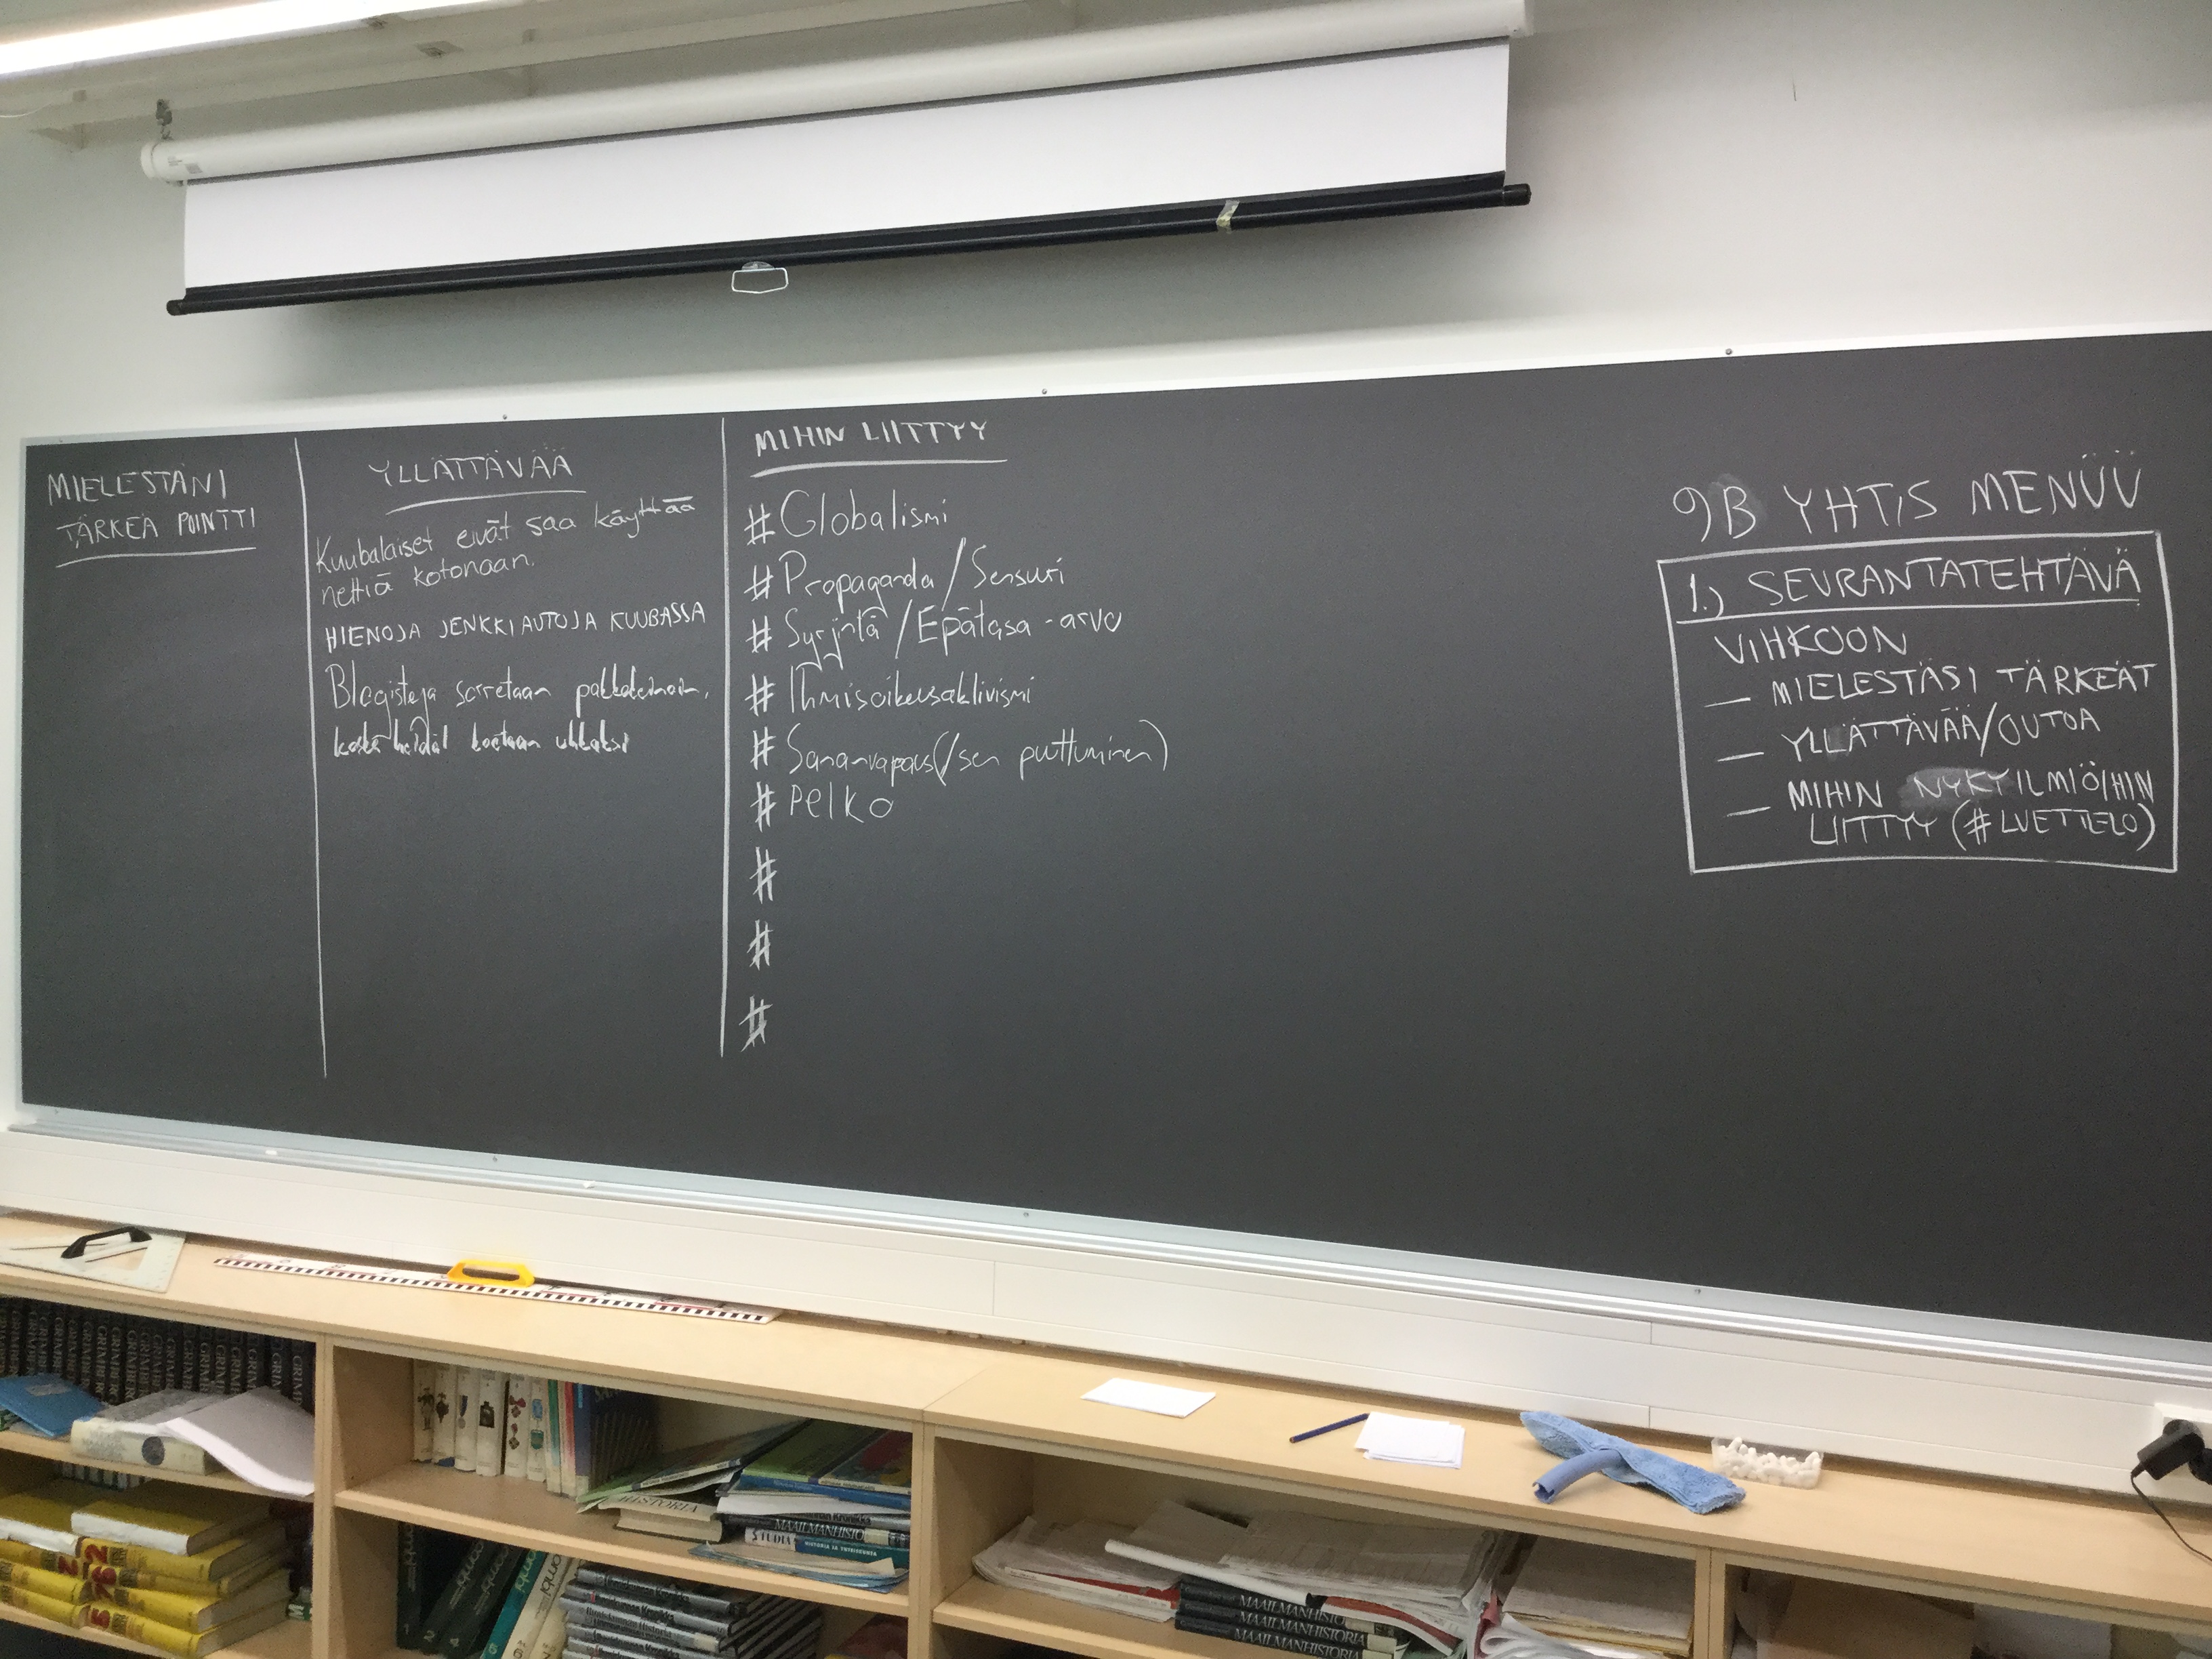 MIELESTÄNI
TÄRKEÄ POINTTI
YLLÄTTÄVÄÄ
Kuubalaiset eivät saa käyttää
nettiä kotonaan.
HIENOJA JENKKIAUTOJA KUUBASSA
Blogisteja sorretaan pakkokeinoin,
koska heidät koetaan uhkaksi
MIHIN LIITTYY
# Globalismi
# Propaganda / Sensuuri
# Syrjintä / Epätasa-arvo
# Ihmisoikeusaktivismi
# Sananvapaus (/sen puuttuminen)
# Pelko
#
#
#
9B YHTIS MENÜÜ
1.) SEURANTATEHTÄVÄ
VIHKOON
— MIELESTÄSI TÄRKEÄT
— YLLÄTTÄVÄÄ/OUTOA
— MIHIN NYKYILMIÖIHIN
LIITTYY (# LUETTELO)
HISTORIA
MAAILMANHISTO
STUDIA
HISTORIA JA YHTEISKUNTA
MAAILMANHISTO
MAAILMANHISTORIA
MAAILMANHISTORIA